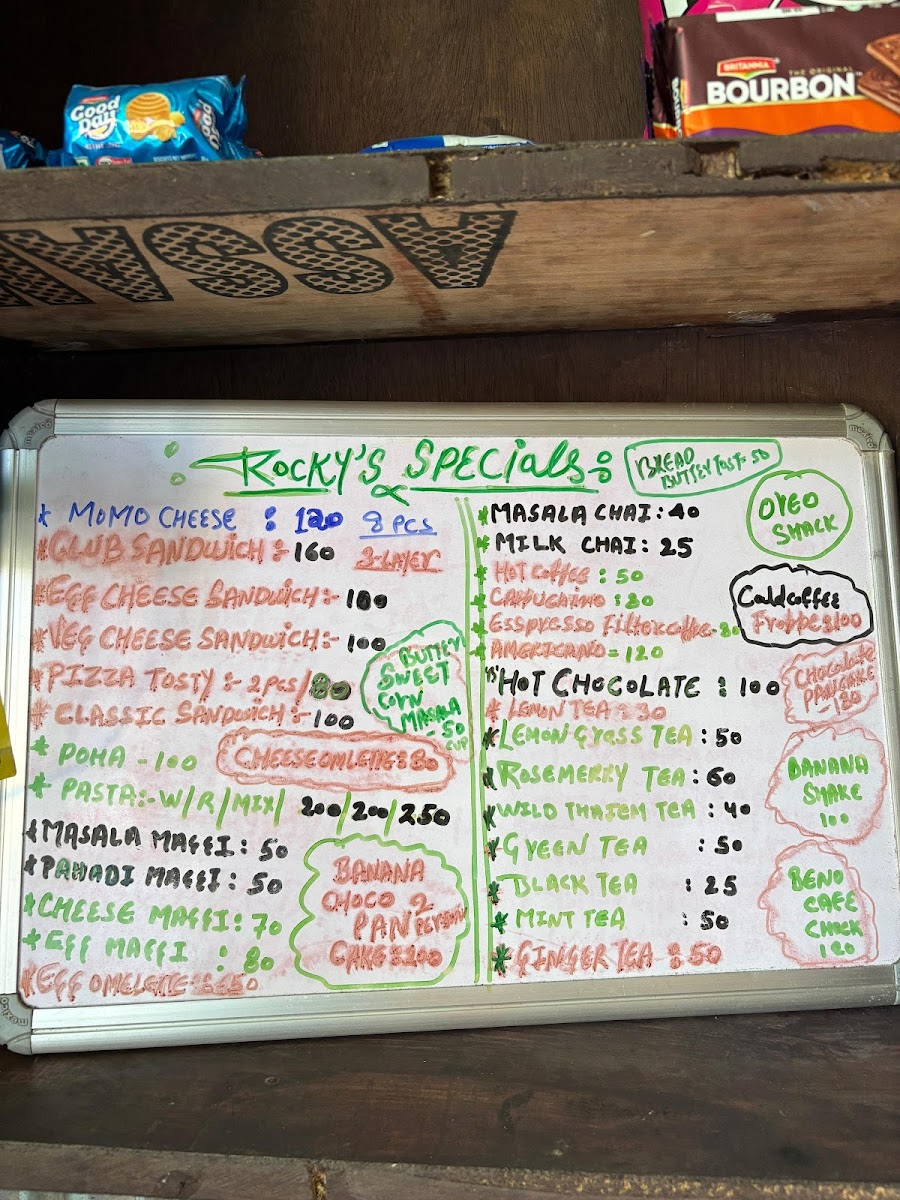 Good Day
Good Day
BRITANNIA
THE ORIGINAL
BOURBON
ASSA
mexico
mexico
ROCKY'S SPECIALS :
BREAD
BUTTEY TOST- 50
* MOMO CHEESE : 120 8 PCS
* CLUB SANDWICH :- 160 3-LAYER
* EGG CHEESE SANDWICH :- 100
* VEG CHEESE SANDWICH :- 100
* PIZZA TOSTY :- 2 PCS/80
* CLASSIC SANDWICH :- 100
BUTTEY
SWEET
CORN
MASALA
- 50
CUP
* POHA - 100
CHEESE OMLENGE : 80
* PASTA :- W/R/MIX/ 200/200/250
* MASALA MAGGI : 50
* PAHADI MAGGI : 50
* CHEESE MAGGI : 70
* EGG MAGGI : 80
BANANA
CHOCO 2
PAN
CAKE : 200
* MASALA CHAI : 40
* MILK CHAI : 25
* HOT COFFEE : 50
* CAPPUCAINO : 80
* ESSPRESSO FILTER COFFEE - 80
* AMERICANO = 120
HOT CHOCOLATE : 100
* LEMON TEA : 30
* LEMON GYASS TEA : 50
* ROSEMERRY TEA : 60
* WILD THAIEM TEA : 40
* GYEEN TEA : 50
* BLACK TEA : 25
* MINT TEA : 50
* GINGER TEA : 50
OYEO
SHACK
Coldcoffee
Frappe : 100
CHOCOLATE
PANCAKE
- 180
BANANA
SHAKE
100
BENO
CAFE
CHOCK
120
mexico